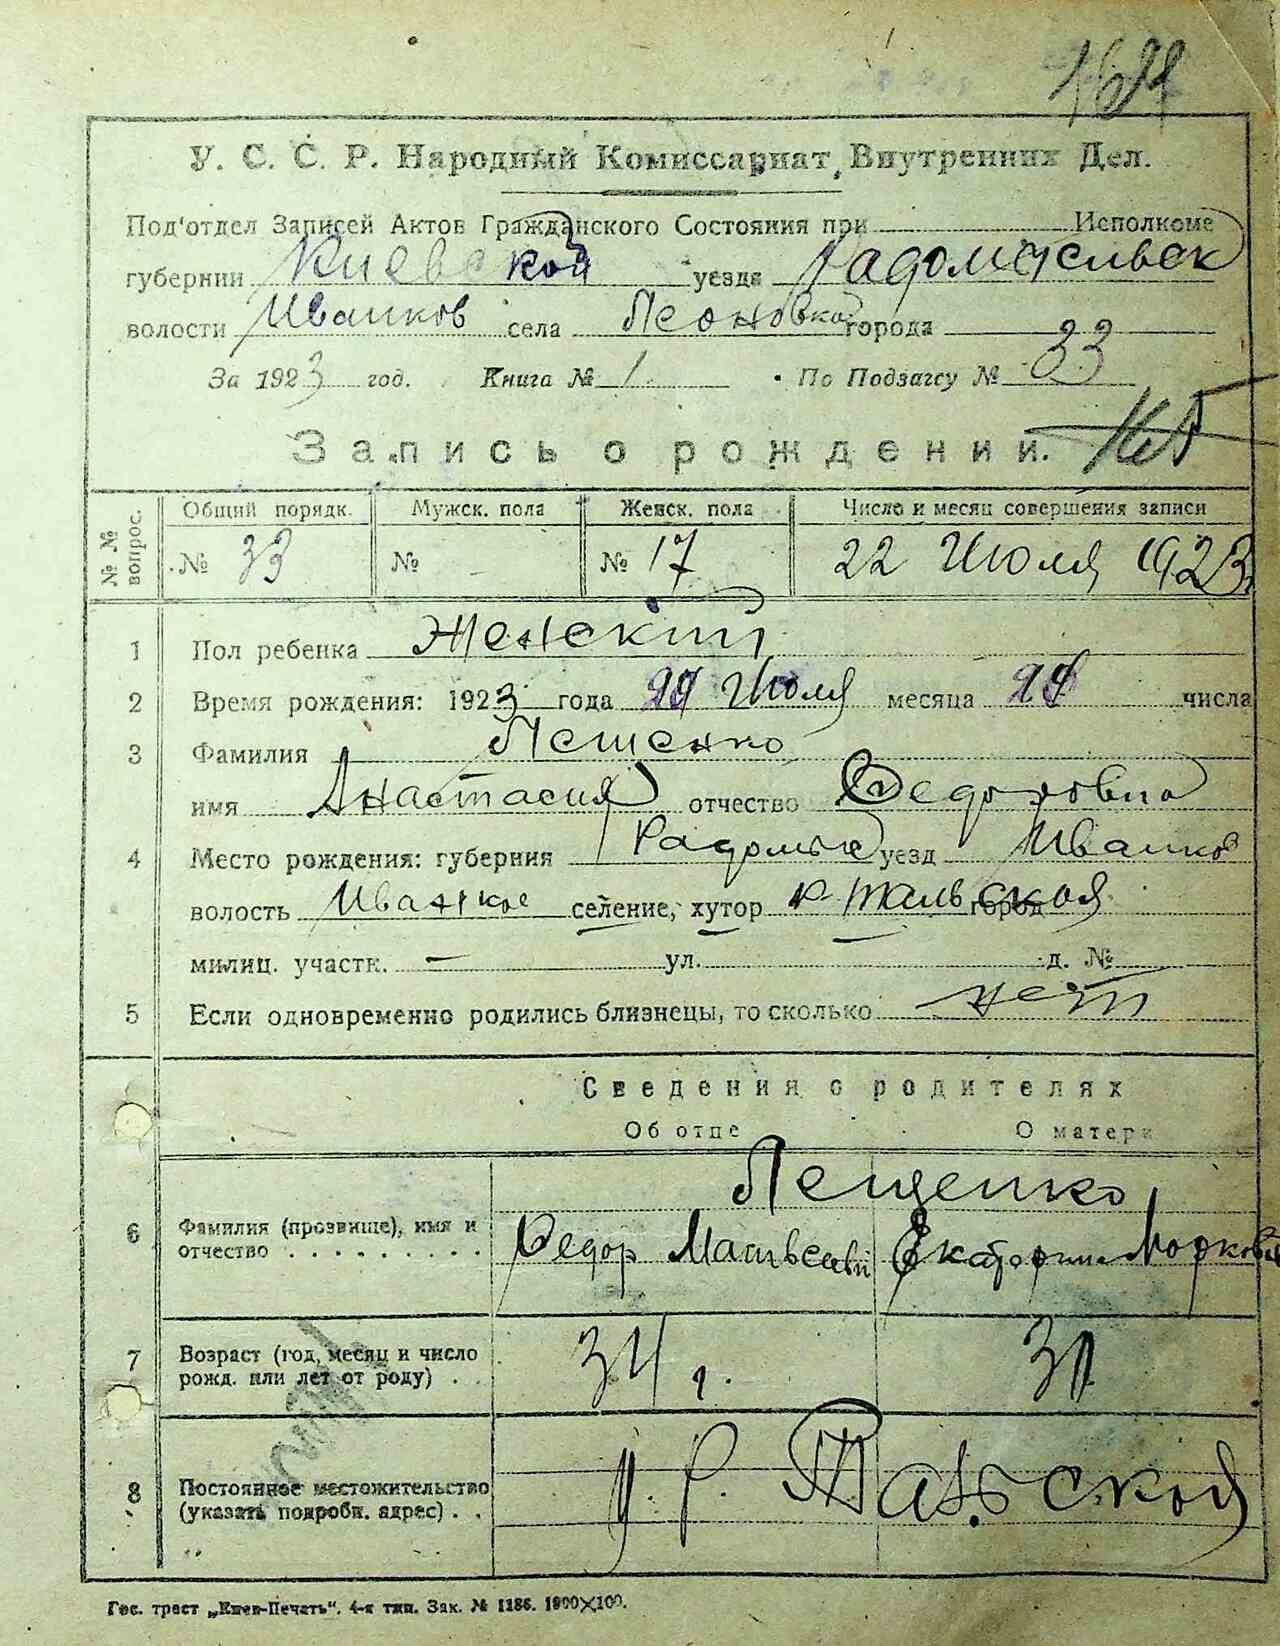 У. С. С. Р. Народный Комиссариат Внутренних Дел.
Под'отдел Записей Актов Гражданского Состояния при Исполкоме
губернии Киевской уезда Радомысльск
волости Иванков села Леоновка города
За 1923 год. Книга № 1. По Подзагсу № 33
Запись о рождении.
№ № вопрос. Общий порядк. Мужск. пола Женск. пола Число и месяц совершения записи
№ 33 № - № 17 22 Июля 1923
1 Пол ребенка Женский
2 Время рождения: 1923 года Июля месяца числа
3 Фамилия Лещенко
имя Анастасия отчество Федоровна
4 Место рождения: губерния Радомысл уезд Иванков
волость селение, хутор город
милиц. участк. — ул. д. №
5 Если одновременно родились близнецы, то сколько нет
Сведения о родителях
Об отце О матери
Лещенко
6 Фамилия (прозвище), имя и отчество Федор Матвеевич Екатерина Марковна
7 Возраст (год, месяц и число рожд. или лет от роду) 34 г.
8 Постоянное местожительство (указать подробн. адрес)
Гос. трест „Киев-Печать“. 4-я тип. Зак. № 1186. 1900×100.